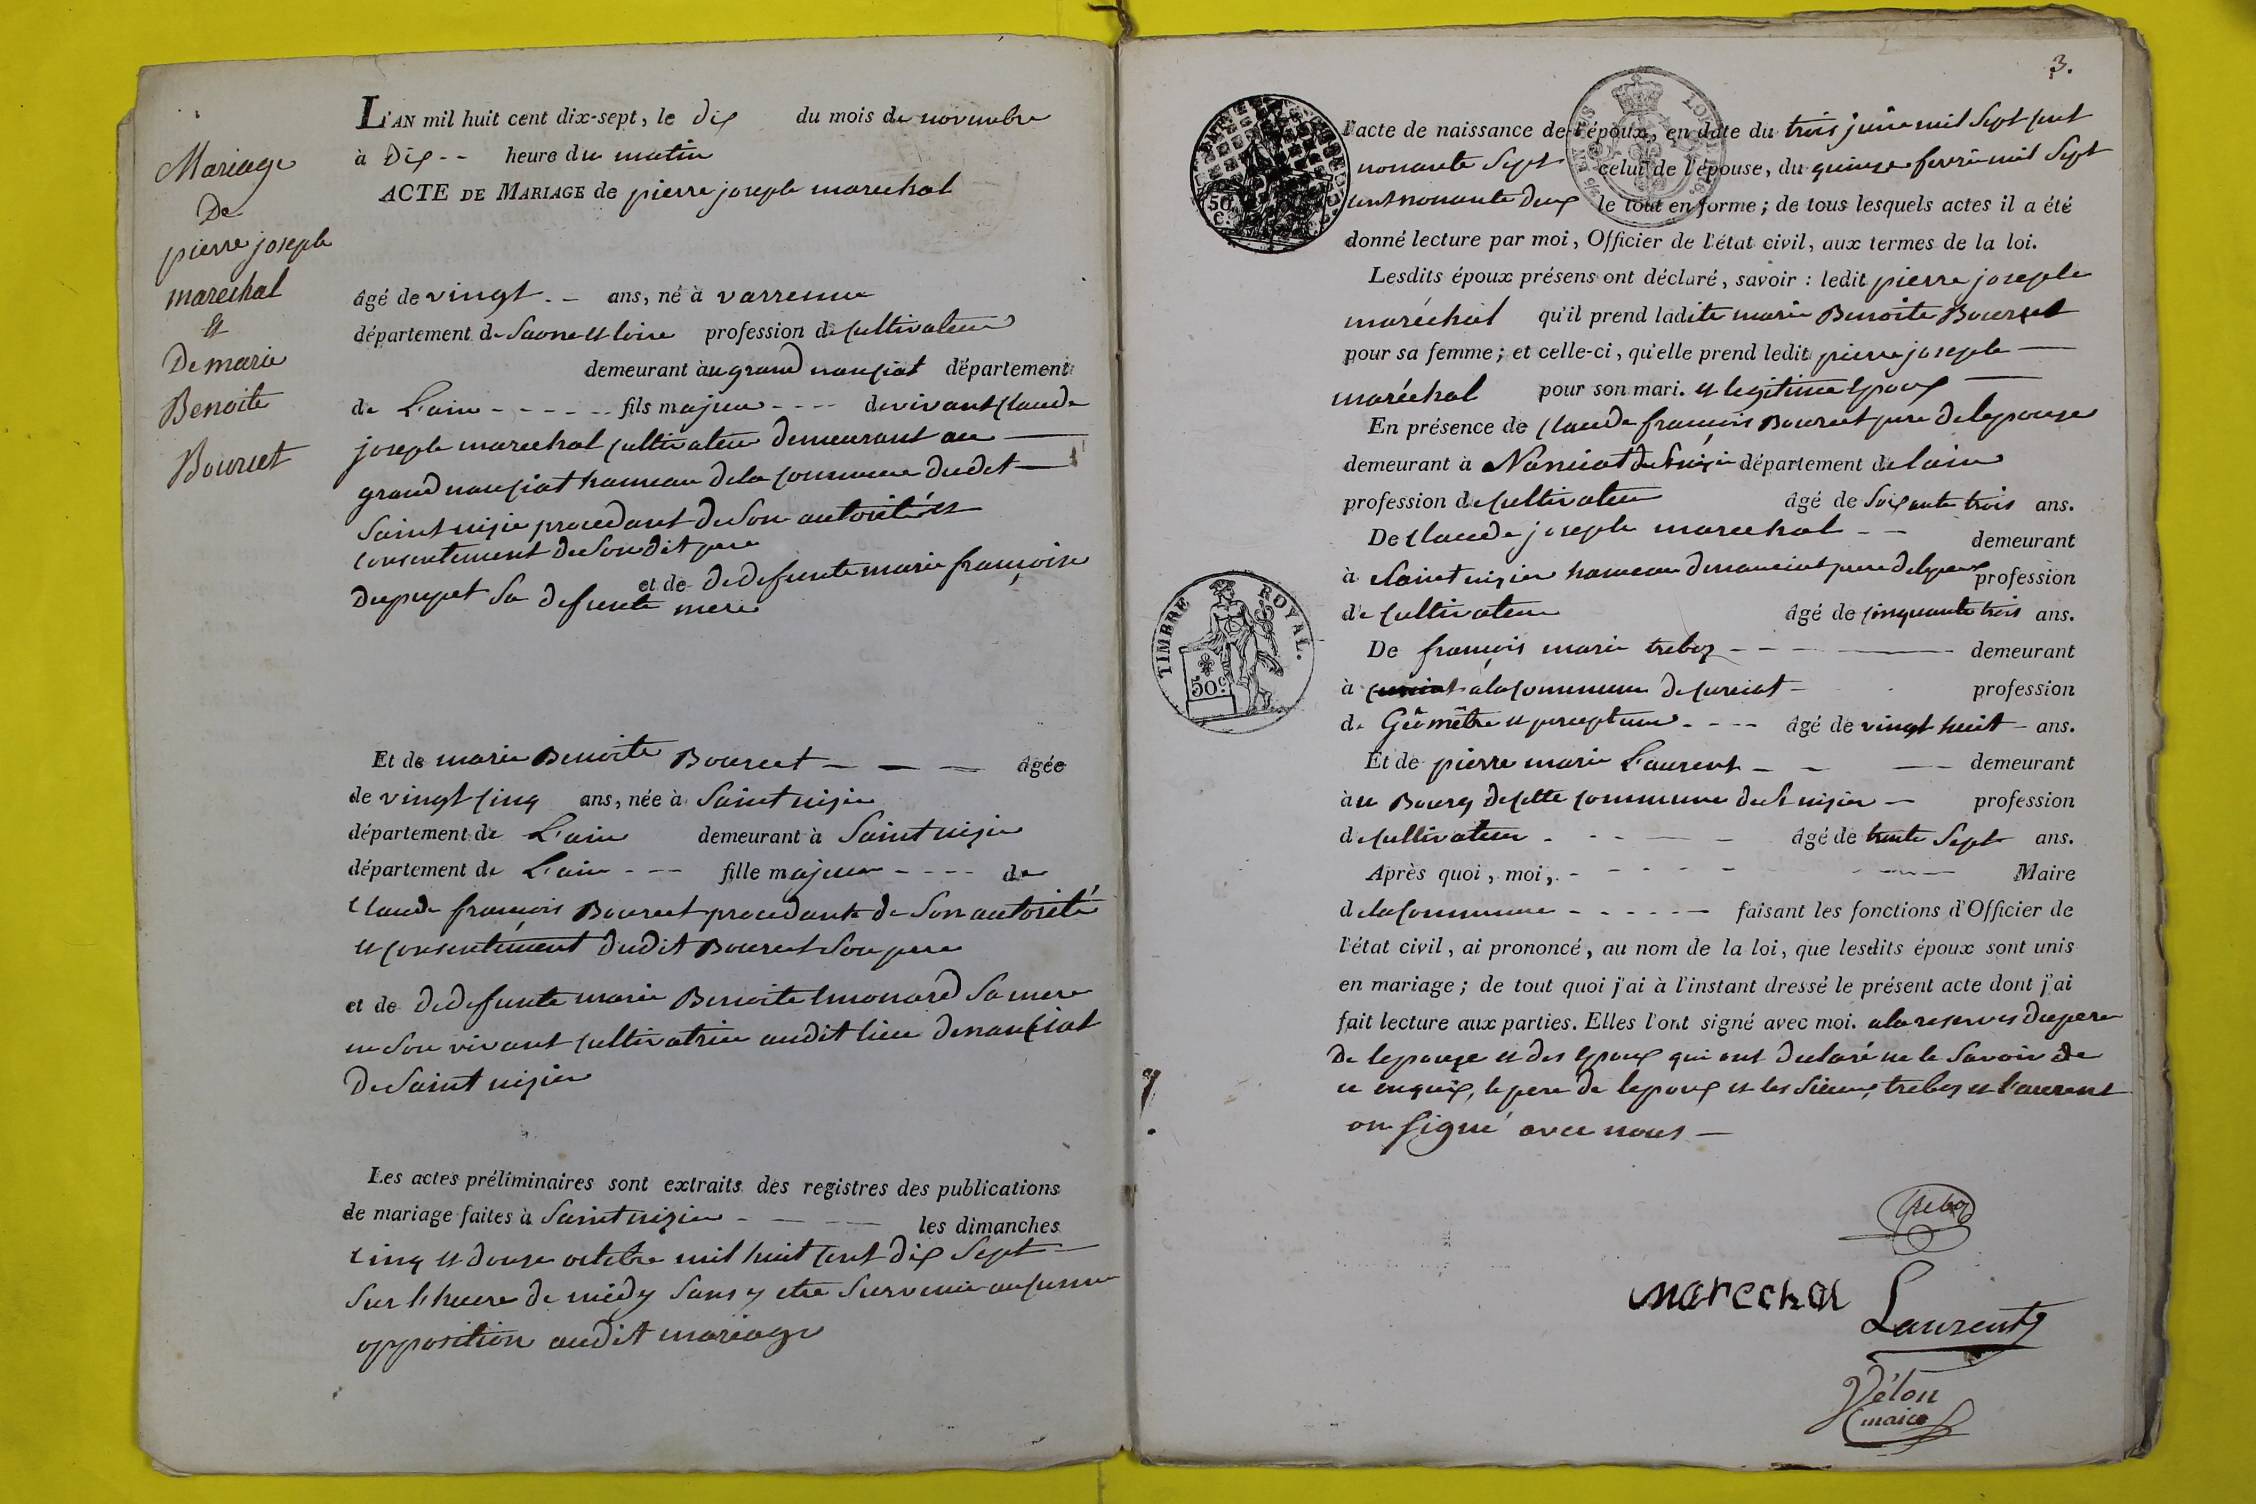 Mariage
De
pierre joseph
marechal
et
De marie
Benoite
Bourcet
L'AN mil huit cent dix-sept, le dix du mois de novembre
à Dix -- heure du matin
ACTE DE MARIAGE de pierre joseph marechal
âgé de vingt -- ans, né à varrenne
département de Saone et loire profession de cultivateur
demeurant au grand nanciat département
de L'ain ----- fils majeur ---- de vivant claude
joseph marechal cultivateur demeurant au
grand nanciat hameau de la commune dudit
Saint nizier procedant de Son autorité et
consentement de Son dit pere
et de dedefunte marie françoise
dupupet Sa defunte mere
Et de marie Benoite Bourcet --- âgée
de vingt cinq ans, née à Saint nizier
département de L'ain demeurant à Saint nizier
département de L'ain --- fille majeur ---- de
claude françois Bourcet procedante de Son autorité
et consentement dudit Bourcet Son pere
et de dedefunte marie Benoite monard Sa mere
en Son vivant cultivatrice audit lieu denanciat
De Saint nizier
Les actes préliminaires sont extraits des registres des publications
de mariage faites à Saint nizier ---- les dimanches
cinq et douze octobre mil huit cent dix Sept
Sur l'heure de midy Sans y etre Survenu aucunne
opposition audit mariage
3.
l'acte de naissance de l'époux, en date du trois juin mil Sept cent
nonante Sept celui de l'épouse, du quinze fevrie mil Sept
cent nonante deux le tout en forme; de tous lesquels actes il a été
donné lecture par moi, Officier de l'état civil, aux termes de la loi.
Lesdits époux présens ont déclaré, savoir: ledit pierre joseph
maréchal qu'il prend ladite marie Benoite Bourcet
pour sa femme; et celle-ci, qu'elle prend ledit pierre joseph
maréchal pour son mari. et legitime Epoux
En présence de claude françois Bourcet pere delepouze
demeurant à Nanciat de St nizier département de lain
profession de cultivateur âgé de Soixante trois ans.
De claude joseph marechal -- demeurant
à Saint nizier hameau denanciat pere delepoux profession
de cultivateur âgé de cinquante trois ans.
De françois marie treboz --- demeurant
à alacommune de curciat - profession
de Géométre et percepteur ---- âgé de vingt huit - ans.
Et de pierre marie Laurent --- demeurant
àu Bourg decette commune de St nizier - profession
de cultivateur ----- âgé de trente Sept ans.
Après quoi, moi, ------ Maire
de la commune ----- faisant les fonctions d'Officier de
l'état civil, ai prononcé, au nom de la loi, que lesdits époux sont unis
en mariage; de tout quoi j'ai à l'instant dressé le présent acte dont j'ai
fait lecture aux parties. Elles l'ont signé avec moi. ala reserves dupere
De lepouze et des Epoux qui ont declaré ne le Savoir de
ce enquix, le pere de lepoux et les Sieurs treboz et Laurent
on Signé avec nous
TIMBRE ROYAL.
50 c.
50
C.
treboz
marechal
Laurent
Vélon
maire